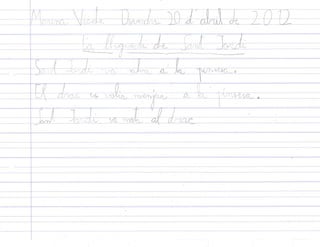 Marina Divendres 20 d'abril de 2012
La llegenda de Sant Jordi
Sant Jordi va a la princesa.
El drac es volia menjar a la princesa.
Sant Jordi va matar al drac